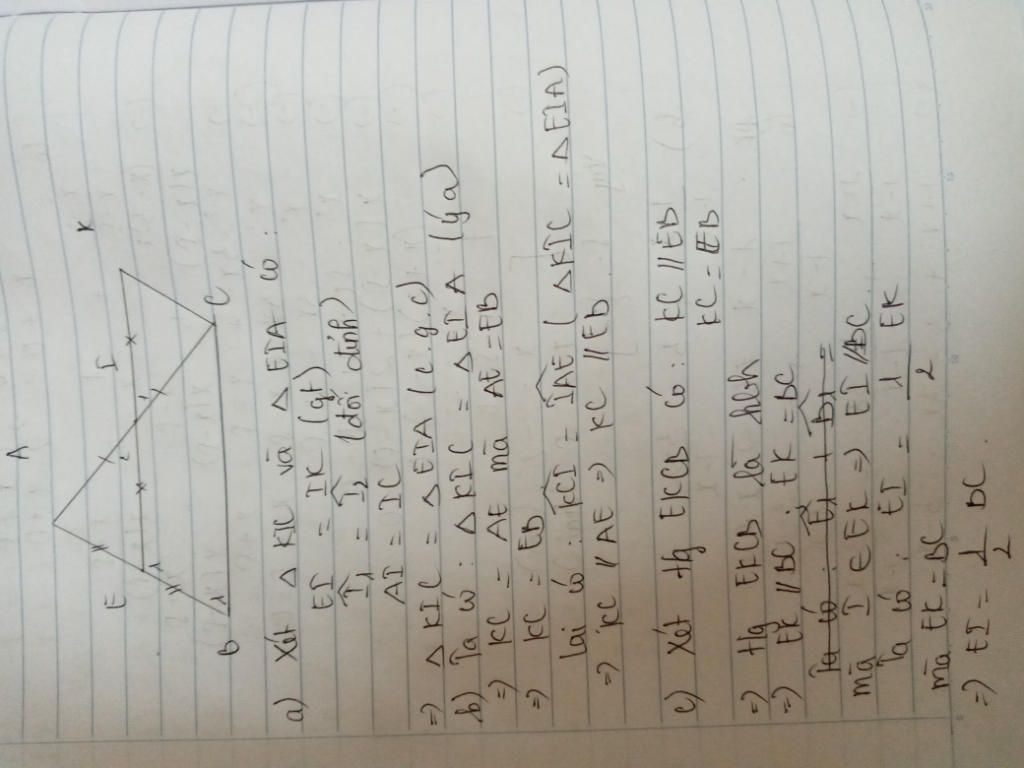 A
E
I
K
x
x
2
1
1
1
B
C
a) Xét △ KIC và △ EIA có :
EI = IK (gt)
Î₁ = Î₂ (đối đỉnh)
AI = IC
=> △ KIC = △ EIA (c.g.c)
b) Ta có : △ KIC = △ EIA (ý a)
=> KC = AE mà AE = EB
=> KC = EB
lại có : KCI = IAE ( △ KIC = △ EIA)
=> KC // AE => KC // EB
c) Xét tg EKCB có : KC // EB
KC = EB
=> tg EKCB là hbh
=> EK // BC ; EK = BC
Ta có : Ê₁ + B̂₁ =
mà I ∈ EK => EI // BC
Ta có : EI = 1/2 EK
mà EK = BC
=> EI = 1/2 BC